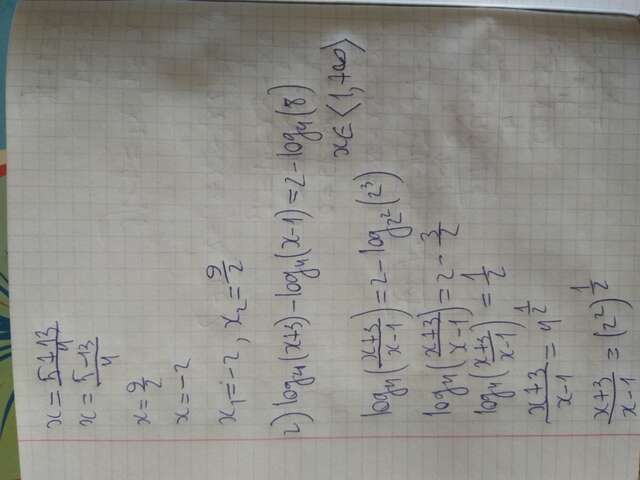 x = (5+13)/4
x = (5-13)/4
x = 9/2
x = -2
x₁ = -2 , x₂ = 9/2
2) log₄(x+3) - log₄(x-1) = 2 - log₄(8)
x ∈ ⟨1, +∞⟩
log₄((x+3)/(x-1)) = 2 - log_{2²}(2³)
log₄((x+3)/(x-1)) = 2 - 3/2
log₄((x+3)/(x-1)) = 1/2
(x+3)/(x-1) = 4^{1/2}
(x+3)/(x-1) = (2²)^{1/2}